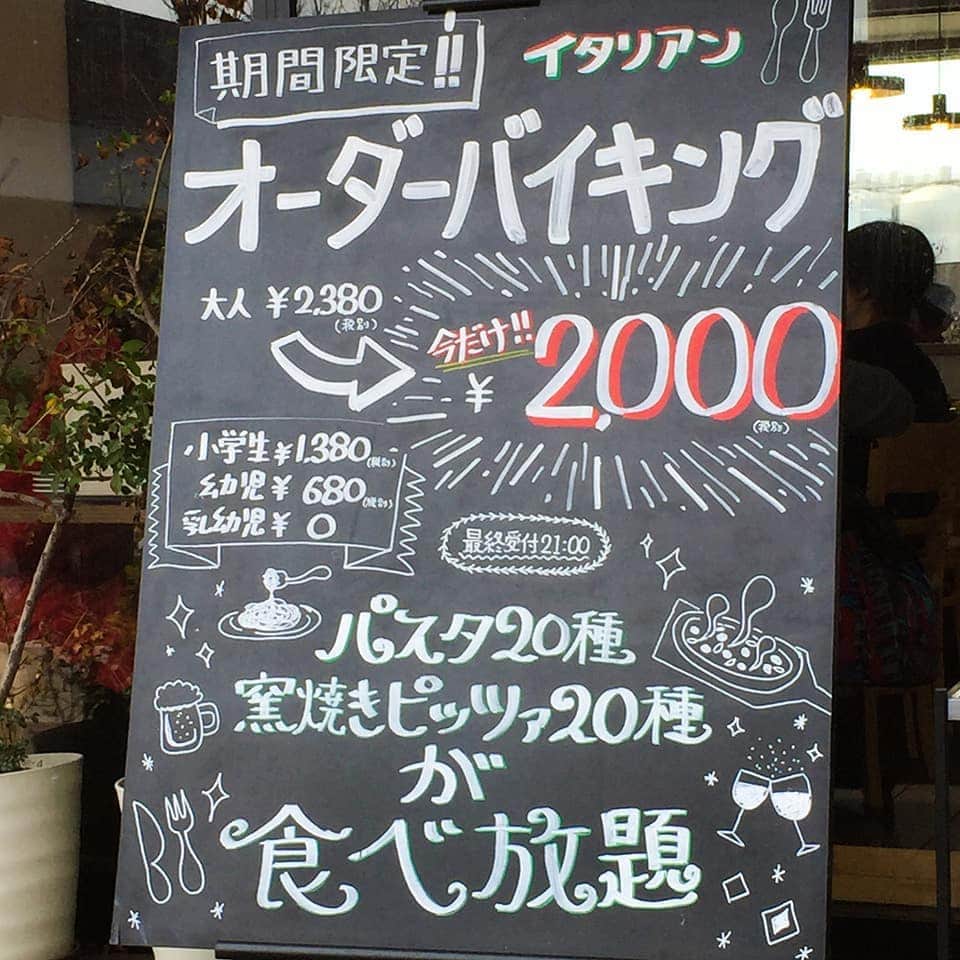 期間限定!!
イタリアン
オーダーバイキング
大人 ¥2,380
(税別)
今だけ!!
¥2,000
(税別)
小学生¥1,380(税別)
幼児¥ 680(税別)
乳幼児¥ 0
最終受付21:00
パスタ20種
窯焼きピッツァ20種
が
食べ放題